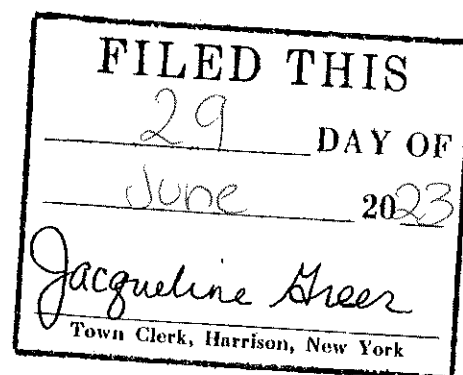 FILED THIS
29 DAY OF
June 2023
Jacqueline Greer
Town Clerk, Harrison, New York